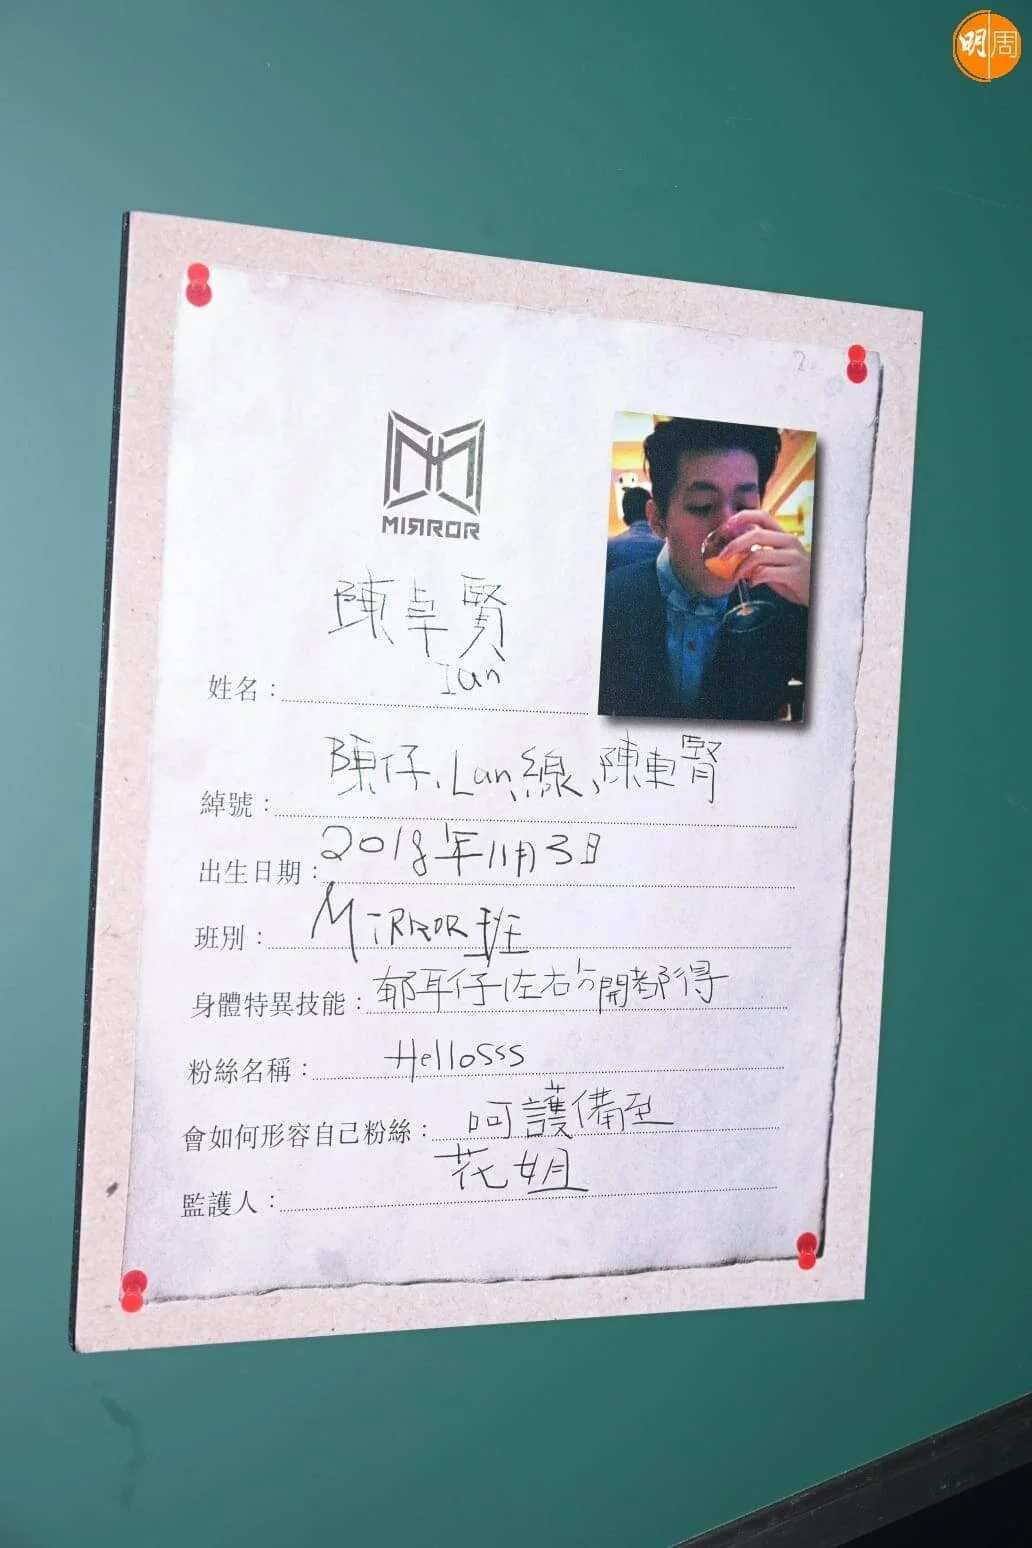 明周
MIRROR
陳卓賢
姓名：Ian
綽號：陳仔、Lan、線、陳車腎
出生日期：2018年11月3日
班別：MIRROR班
身體特異技能：郁耳仔左右分開都得
粉絲名稱：Hellosss
會如何形容自己粉絲：呵護備至
監護人：花姐